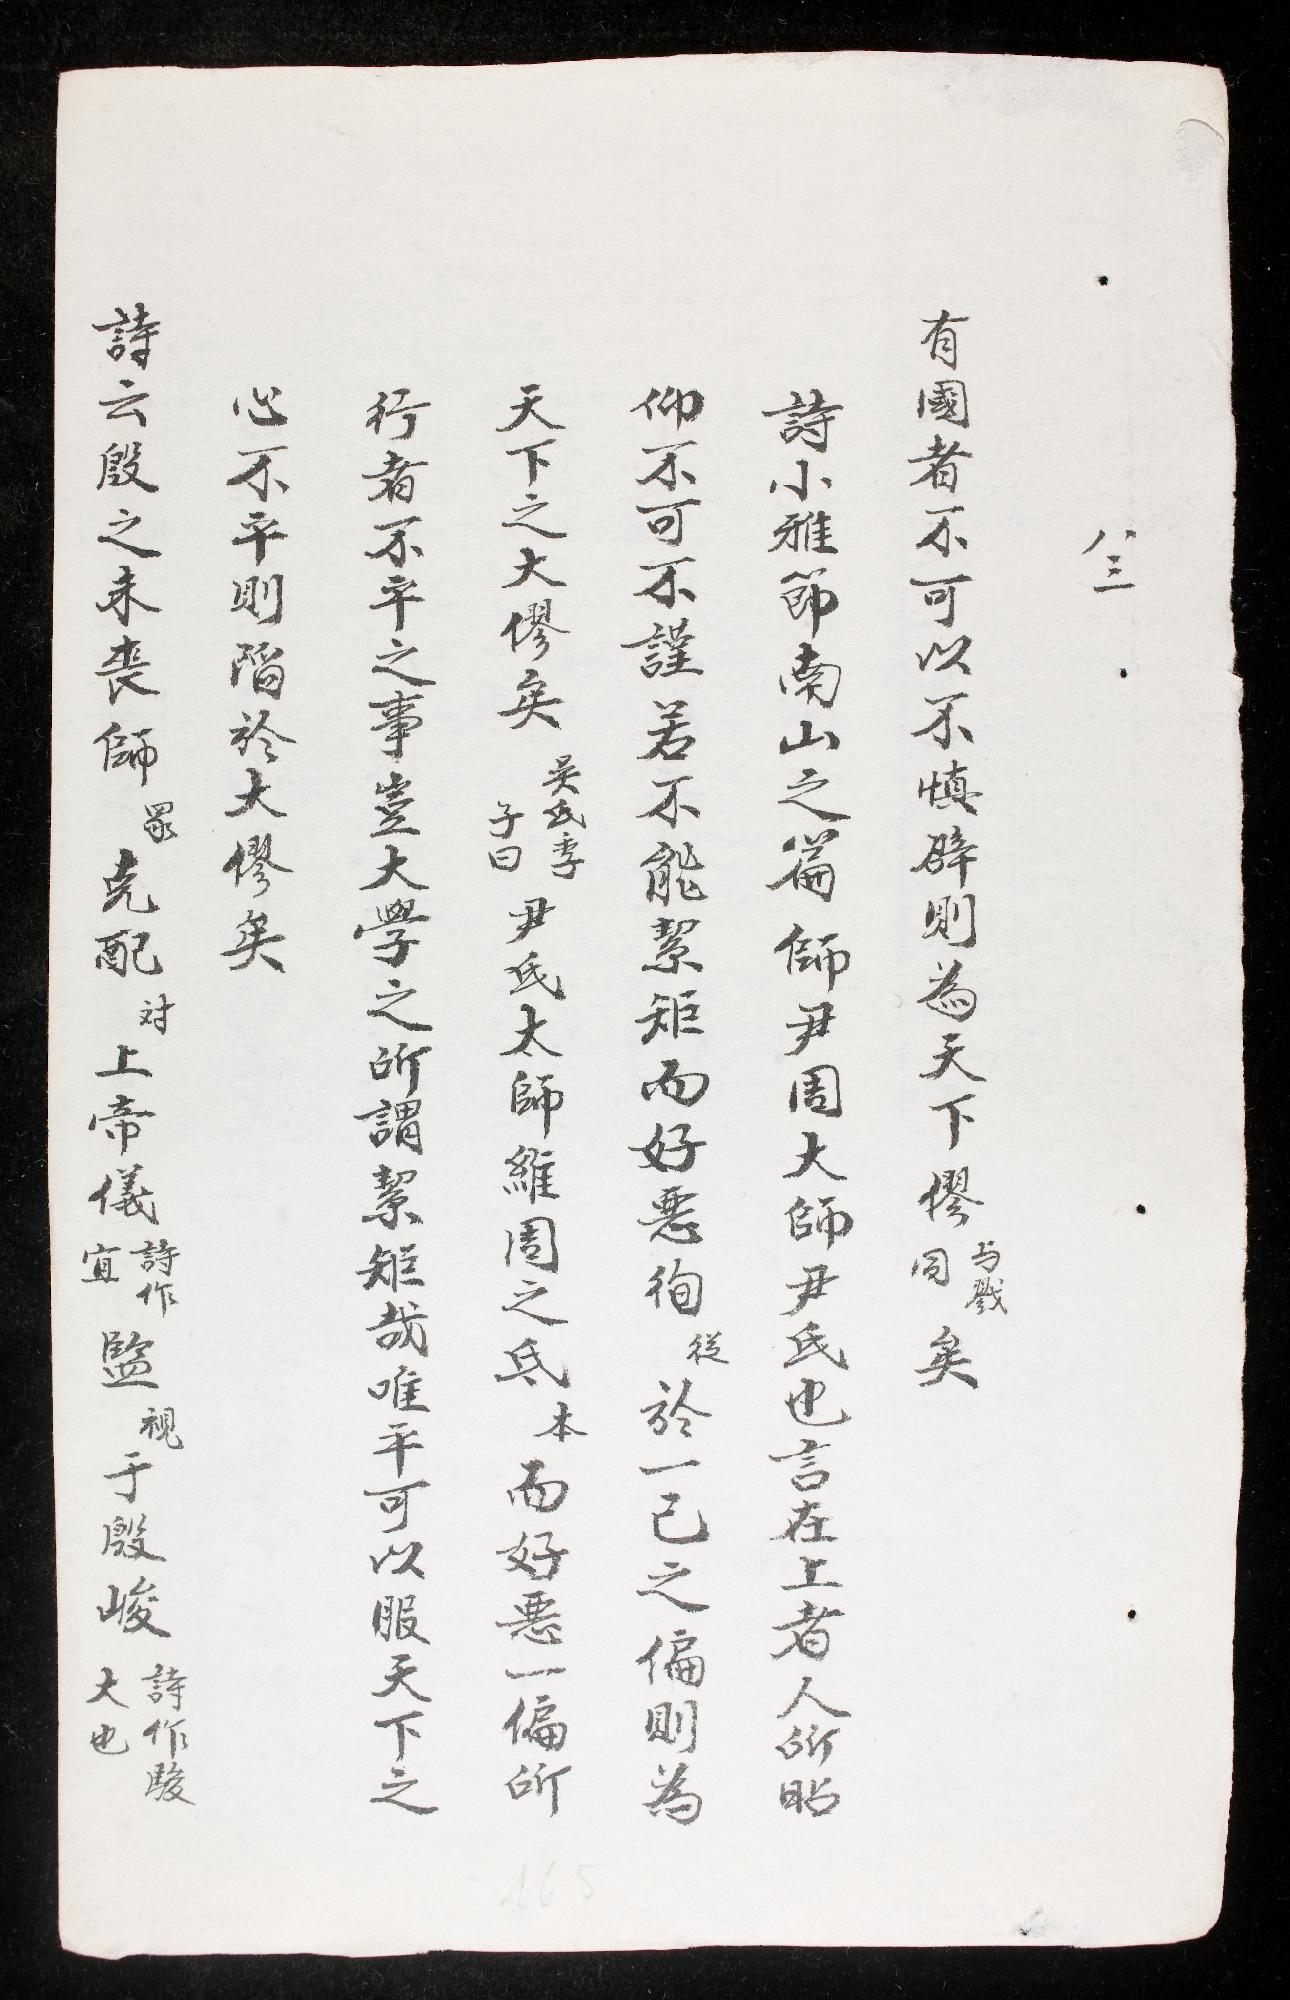 八三
有國者不可以不慎辟則為天下僇与戮同矣
詩小雅節南山之篇師尹周大師尹氏也言在上者人所瞻
仰不可不謹若不能絜矩而好惡徇從於一己之偏則為
天下之大僇矣吳氏季子曰尹氏太師維周之氐本而好惡一偏所
行者不平之事豈大學之所謂絜矩哉唯平可以服天下之
心不平則陷於大僇矣
詩云殷之未喪師眾克配对上帝儀詩作宜監視于殷峻詩作駿大也
165